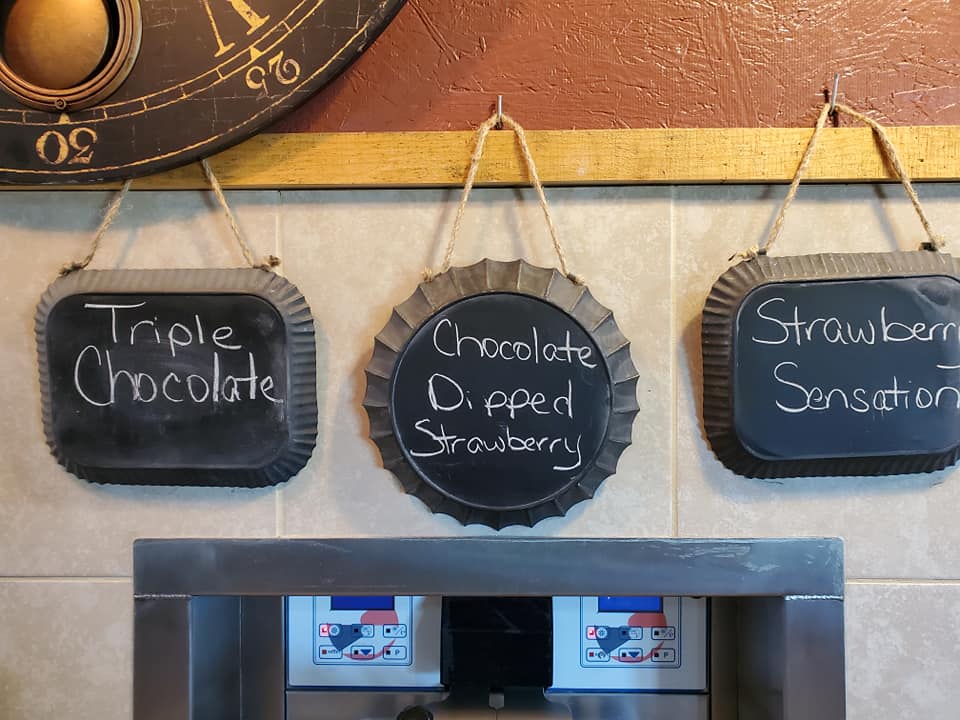 25
30
Triple
Chocolate
Chocolate
Dipped
Strawberry
Strawberry
Sensation
P